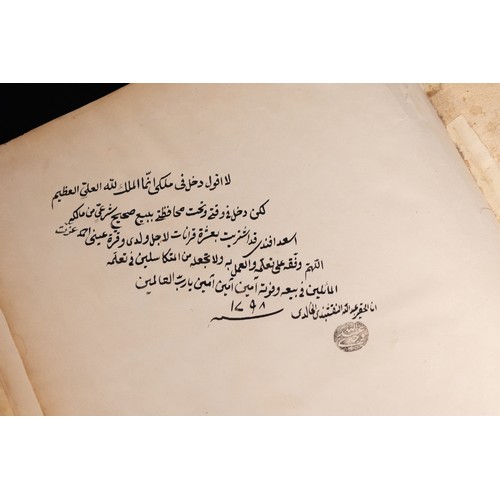 لا اقول دخل فى ملكى انما الملك لله العلى العظيم
لكن دخل فى وقتى وتحت محافظتى ببيع صحيح شرعى من مالكه
اسعد افندى قد اشتريت بعشرة قرانات لاجل ولدى وقرة عينى احمد عزت
اللهم وفقه على تعلمه والعمل به ولا تجعله من المتكاسلين فى تعلمه
المائلين فى بيعه وفوته آمين آمين آمين يا رب العالمين
انا الحقير عبد الله النقشبندى الخالدى
١٧٩٨